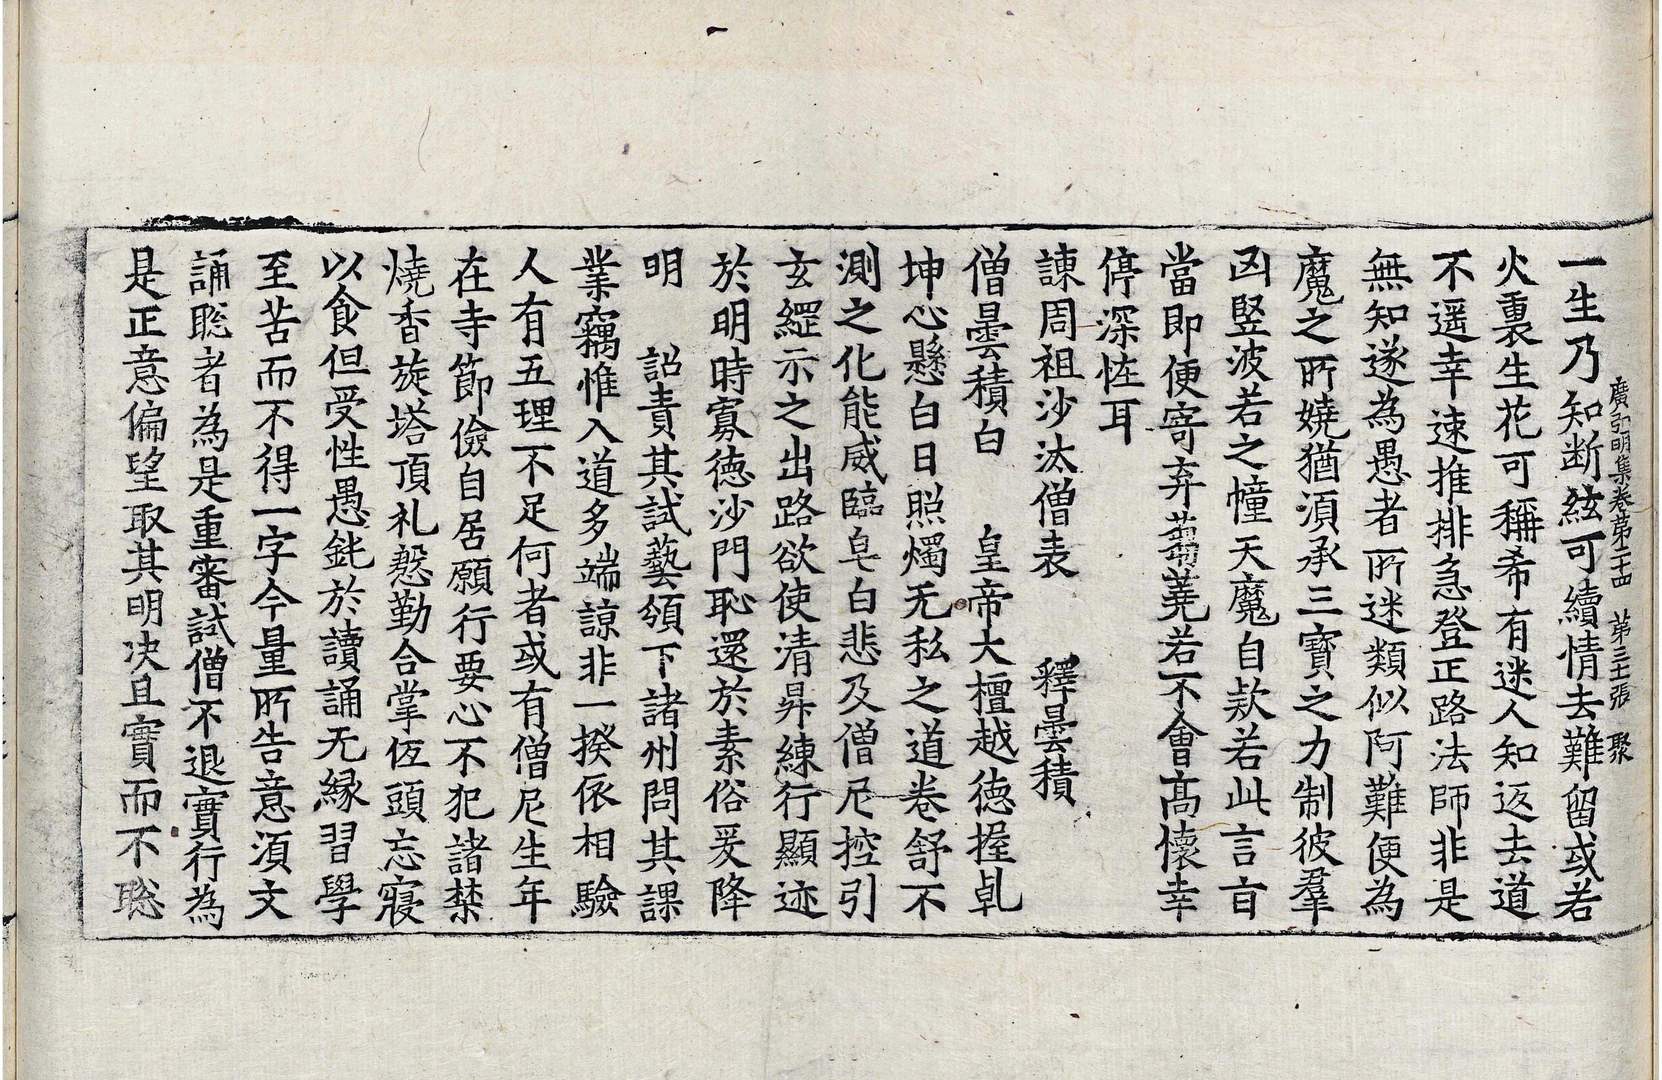 一生乃知断絃可續情去難留或若
廣弘明集卷第二十四　第三十二張　聚
火裏生花可稱希有迷人知返去道
不遥幸速推排急登正路法師非是
無知遂為愚者所迷類似阿難便為
魔之所嬈猶須承三寶之力制彼羣
凶竪波若之幢天魔自款若此言盲
當即便寄弃蒭蕘若不會高懷幸
停深恠耳
諫周祖沙汰僧表　　釋曇積
僧曇積白　皇帝大檀越德握乹
坤心懸白日照燭无私之道卷舒不
測之化能威臨皂白悲及僧尼控引
玄繩示之出路欲使清昇練行顯迹
於明時寡德沙門恥還於素俗爰降
明　詔責其試藝頒下諸州問其課
業竊惟入道多端諒非一揆依相驗
人有五理不足何者或有僧尼生年
在寺節儉自居願行要心不犯諸禁
燒香旋塔頂礼慇勤合掌伍頭忘寢
以食但受性愚鈍於讀誦无緣習學
至苦而不得一字今量所告意湏文
誦聡者為是重審試僧不退實行為
是正意偏望取其明決且實而不聡